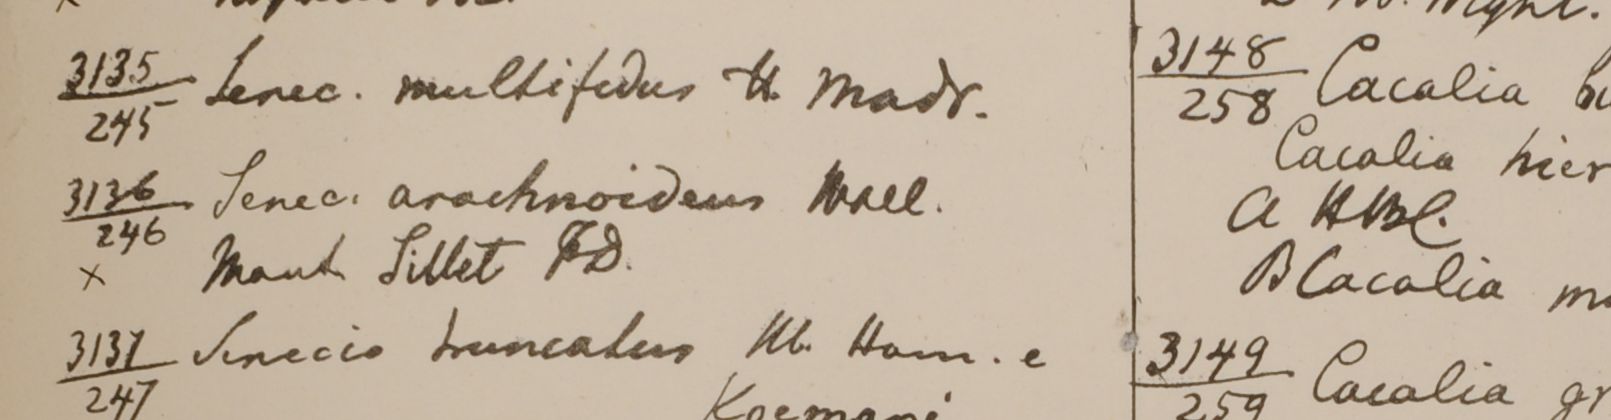 3135
245 Senec. multifidus H. Madr.
3136
246 Senec. arachnoideus Wall.
x Mont. Sillet FD.
3137
247 Senecio truncatus Hb. Ham. e
3148
258 Cacalia
Cacalia hier
a HBC.
B Cacalia
3149
259 Cacalia gr